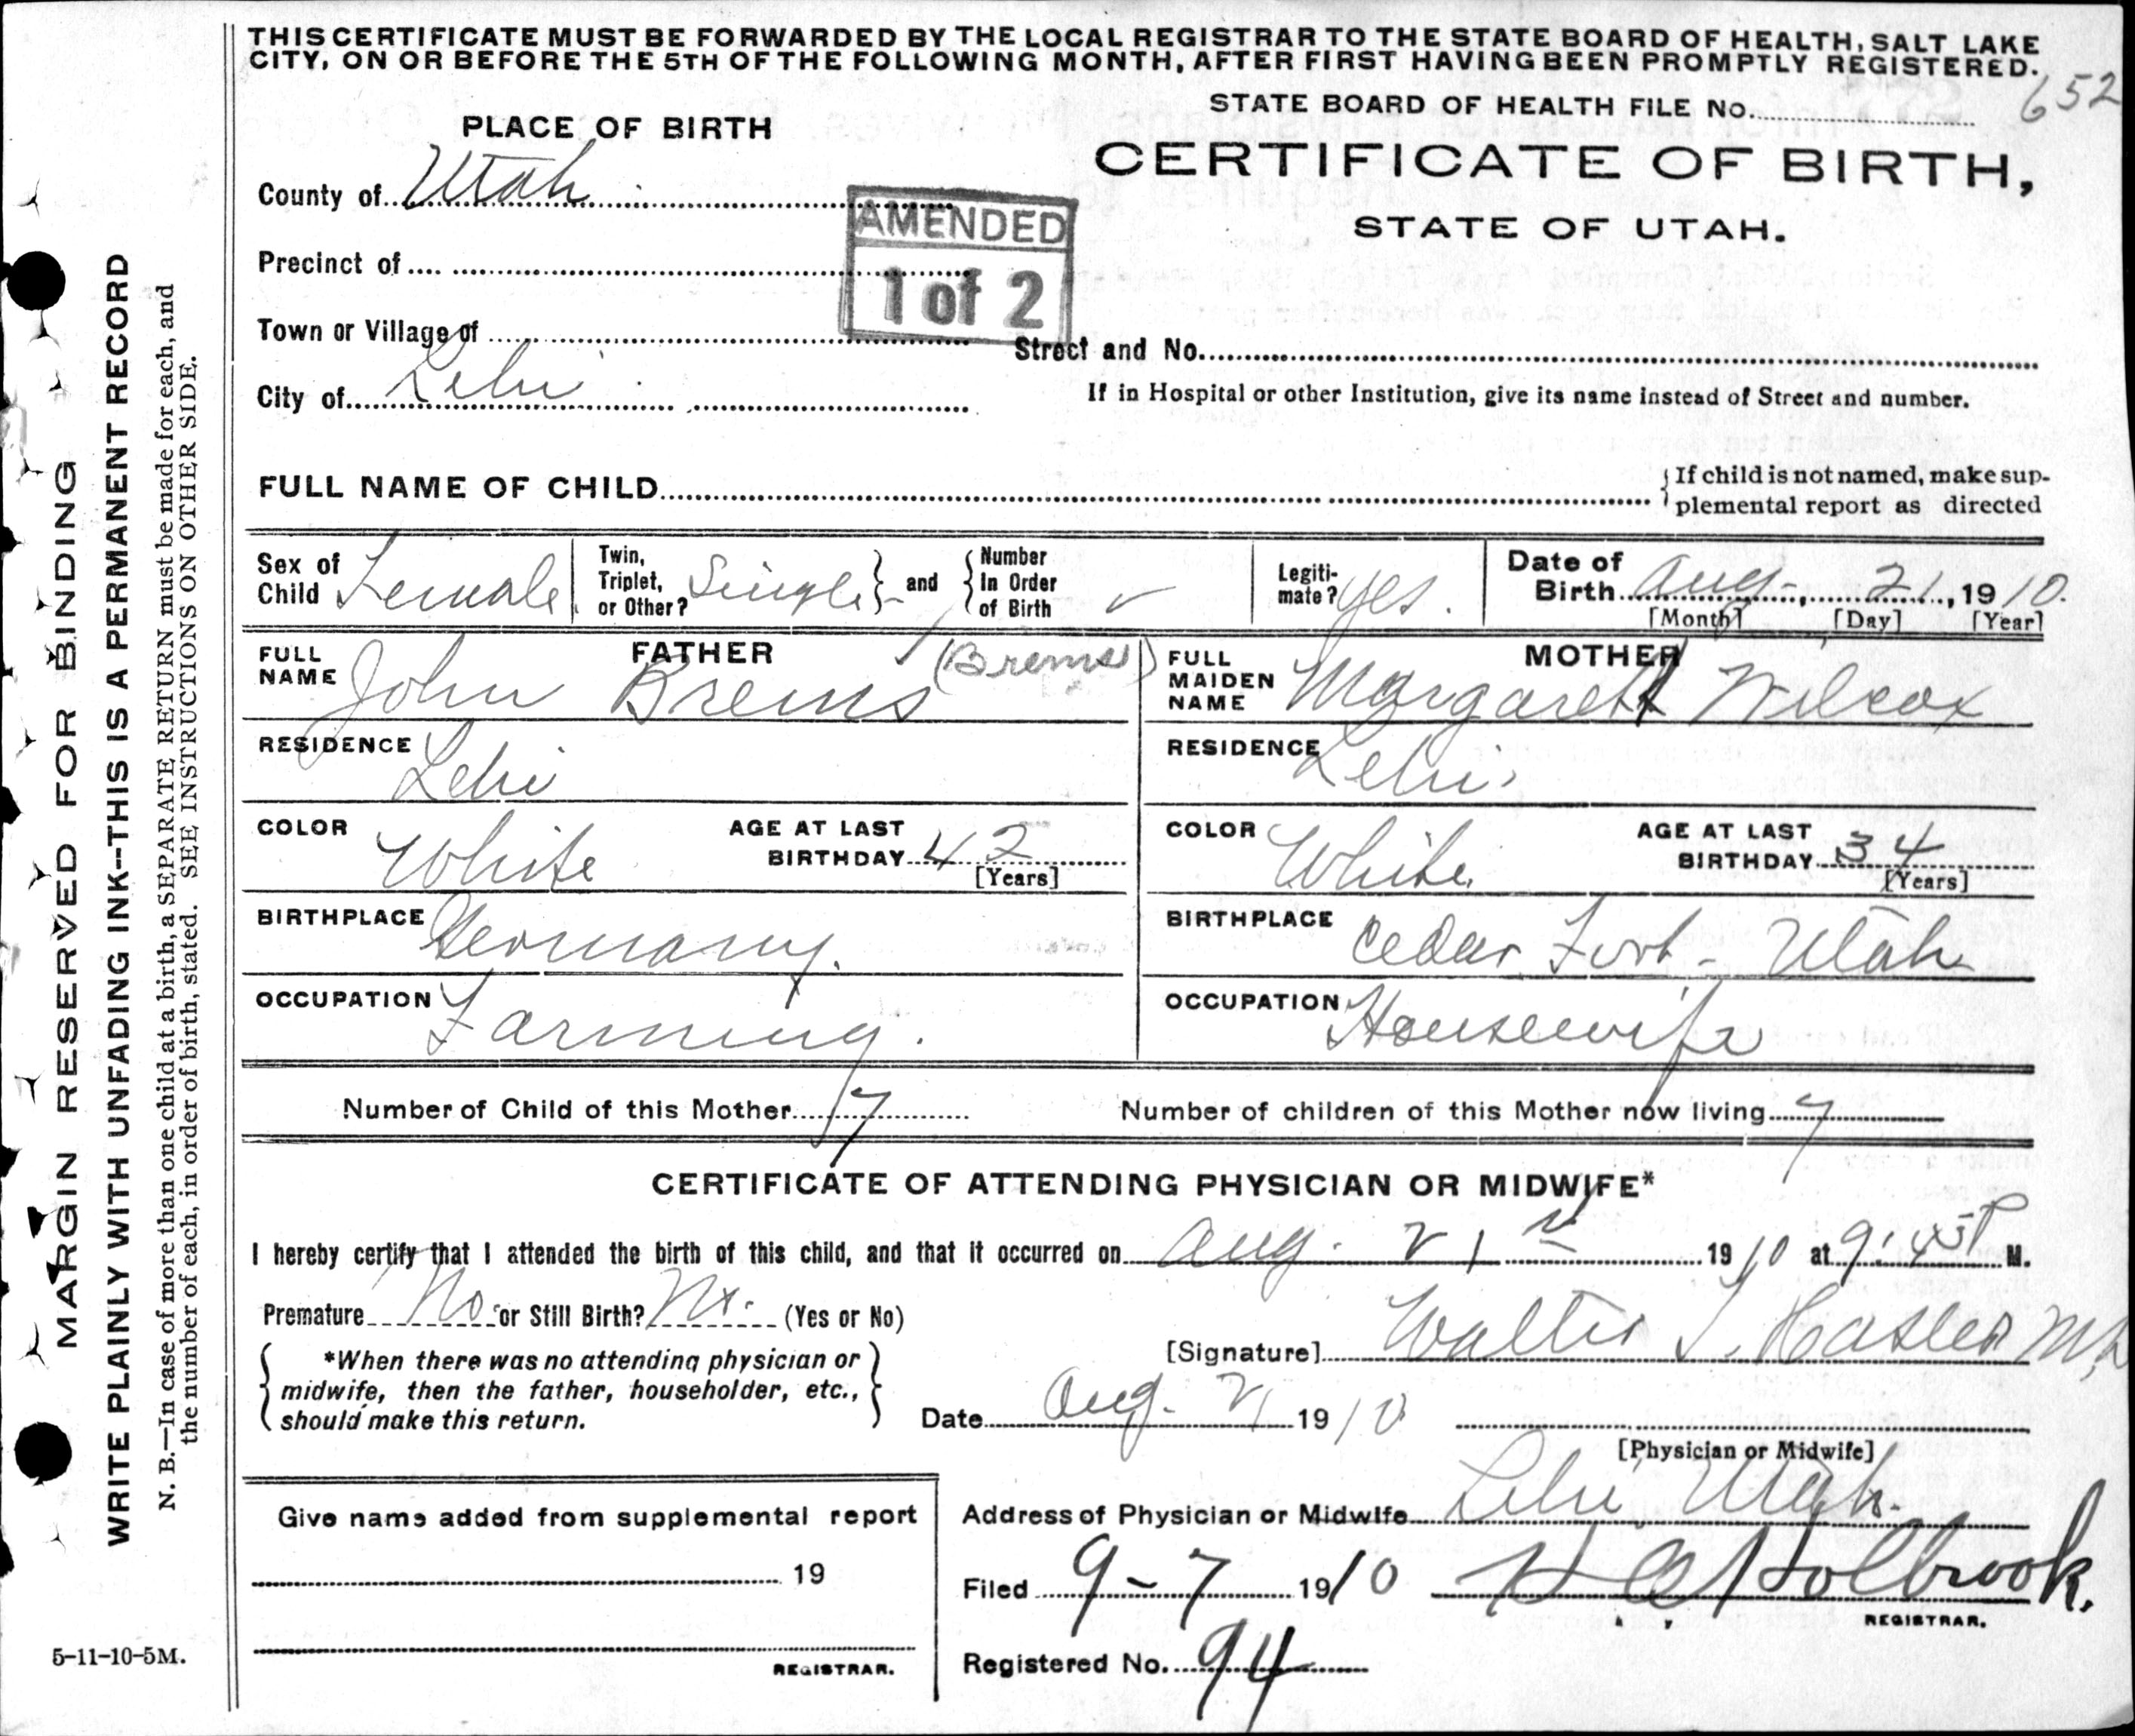 THIS CERTIFICATE MUST BE FORWARDED BY THE LOCAL REGISTRAR TO THE STATE BOARD OF HEALTH, SALT LAKE
CITY, ON OR BEFORE THE 5TH OF THE FOLLOWING MONTH, AFTER FIRST HAVING BEEN PROMPTLY REGISTERED.
STATE BOARD OF HEALTH FILE No. 652
PLACE OF BIRTH
CERTIFICATE OF BIRTH,
STATE OF UTAH.
County of Utah
AMENDED
1 of 2
Precinct of
Town or Village of
Street and No.
City of Lehi
If in Hospital or other Institution, give its name instead of Street and number.
FULL NAME OF CHILD
If child is not named, make sup-
plemental report as directed
Sex of Child Female
Twin, Triplet, or Other? Single and Number In Order of Birth
Legiti-mate? yes.
Date of Birth Aug. 21, 1910.
[Month] [Day] [Year]
FATHER
FULL NAME John Brems (Brems)
RESIDENCE Lehi
COLOR White
AGE AT LAST BIRTHDAY 42
[Years]
BIRTHPLACE Germany.
OCCUPATION Farming.
MOTHER
FULL MAIDEN NAME Margaret Wilcox
RESIDENCE Lehi
COLOR White
AGE AT LAST BIRTHDAY 34
[Years]
BIRTHPLACE Cedar Fort - Utah
OCCUPATION Housewife
Number of Child of this Mother 7
Number of children of this Mother now living 7
CERTIFICATE OF ATTENDING PHYSICIAN OR MIDWIFE*
I hereby certify that I attended the birth of this child, and that it occurred on Aug. 21st 1910 at 9:45 P M.
Premature No or Still Birth? No. (Yes or No)
[Signature] Walter T. Hasler M.D.
*When there was no attending physician or
midwife, then the father, householder, etc.,
should make this return.
Date Aug. 21 1910
[Physician or Midwife]
Give name added from supplemental report
19
REGISTRAR.
Address of Physician or Midwife Lehi Utah.
Filed 9-7 1910 Holbrook.
REGISTRAR.
Registered No. 94
5-11-10-5M.
MARGIN RESERVED FOR BINDING
WRITE PLAINLY WITH UNFADING INK--THIS IS A PERMANENT RECORD
N. B.—In case of more than one child at a birth, a SEPARATE RETURN must be made for each, and
the number of each, in order of birth, stated. SEE INSTRUCTIONS ON OTHER SIDE.